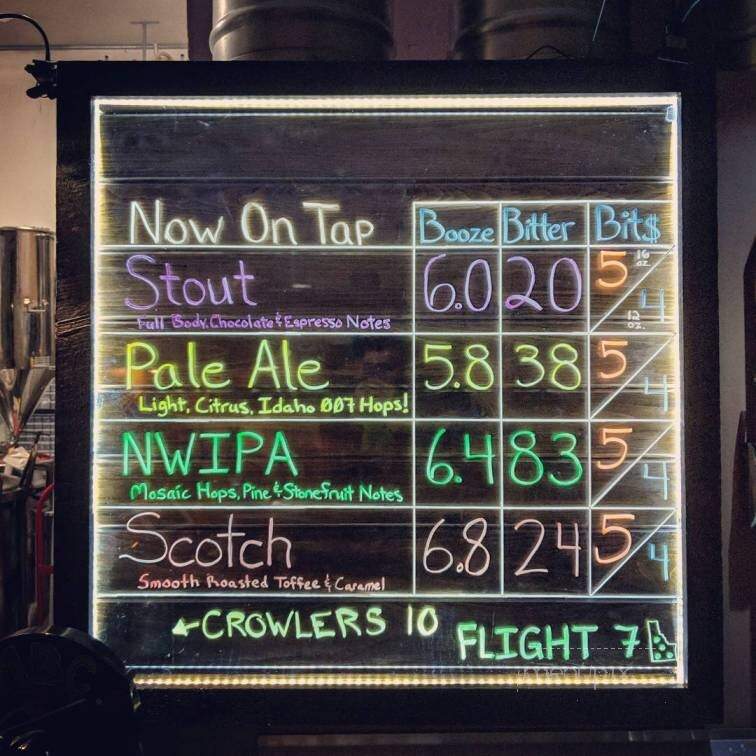 Now On Tap Booze Bitter Bit$
Stout 6.0 20 5 16 oz
4 12 oz.
Full Body, Chocolate & Espresso Notes
Pale Ale 5.8 38 5 4
Light, Citrus, Idaho 007 Hops!
NWIPA 6.4 83 5 4
Mosaic Hops, Pine & Stonefruit Notes
Scotch 6.8 24 5 4
Smooth Roasted Toffee & Caramel
←CROWLERS 10
FLIGHT 7